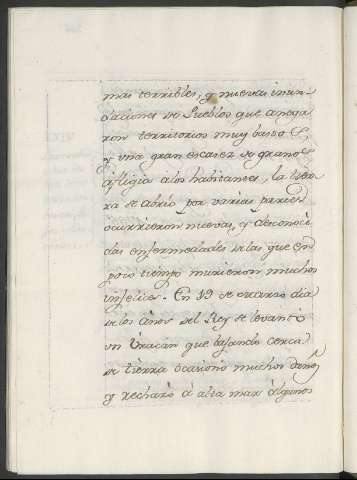 mas terribles, y nuevas inun
daciones de Pueblos que anega
ron territorios muy bastos
y una gran escasez de granos
afligia a los habitantes, la tier
ra se abrio por varias partes
ocurrieron nuevas, y desconoci
das enfermedades de las que en
poco tiempo murieron muchos
infelices. En 19 de marzo dia
de los años del Rey se levantó
un Uracan que bajando cerca
de tierra ocasionó muchos daños,
y rechazó á alta mar algunos